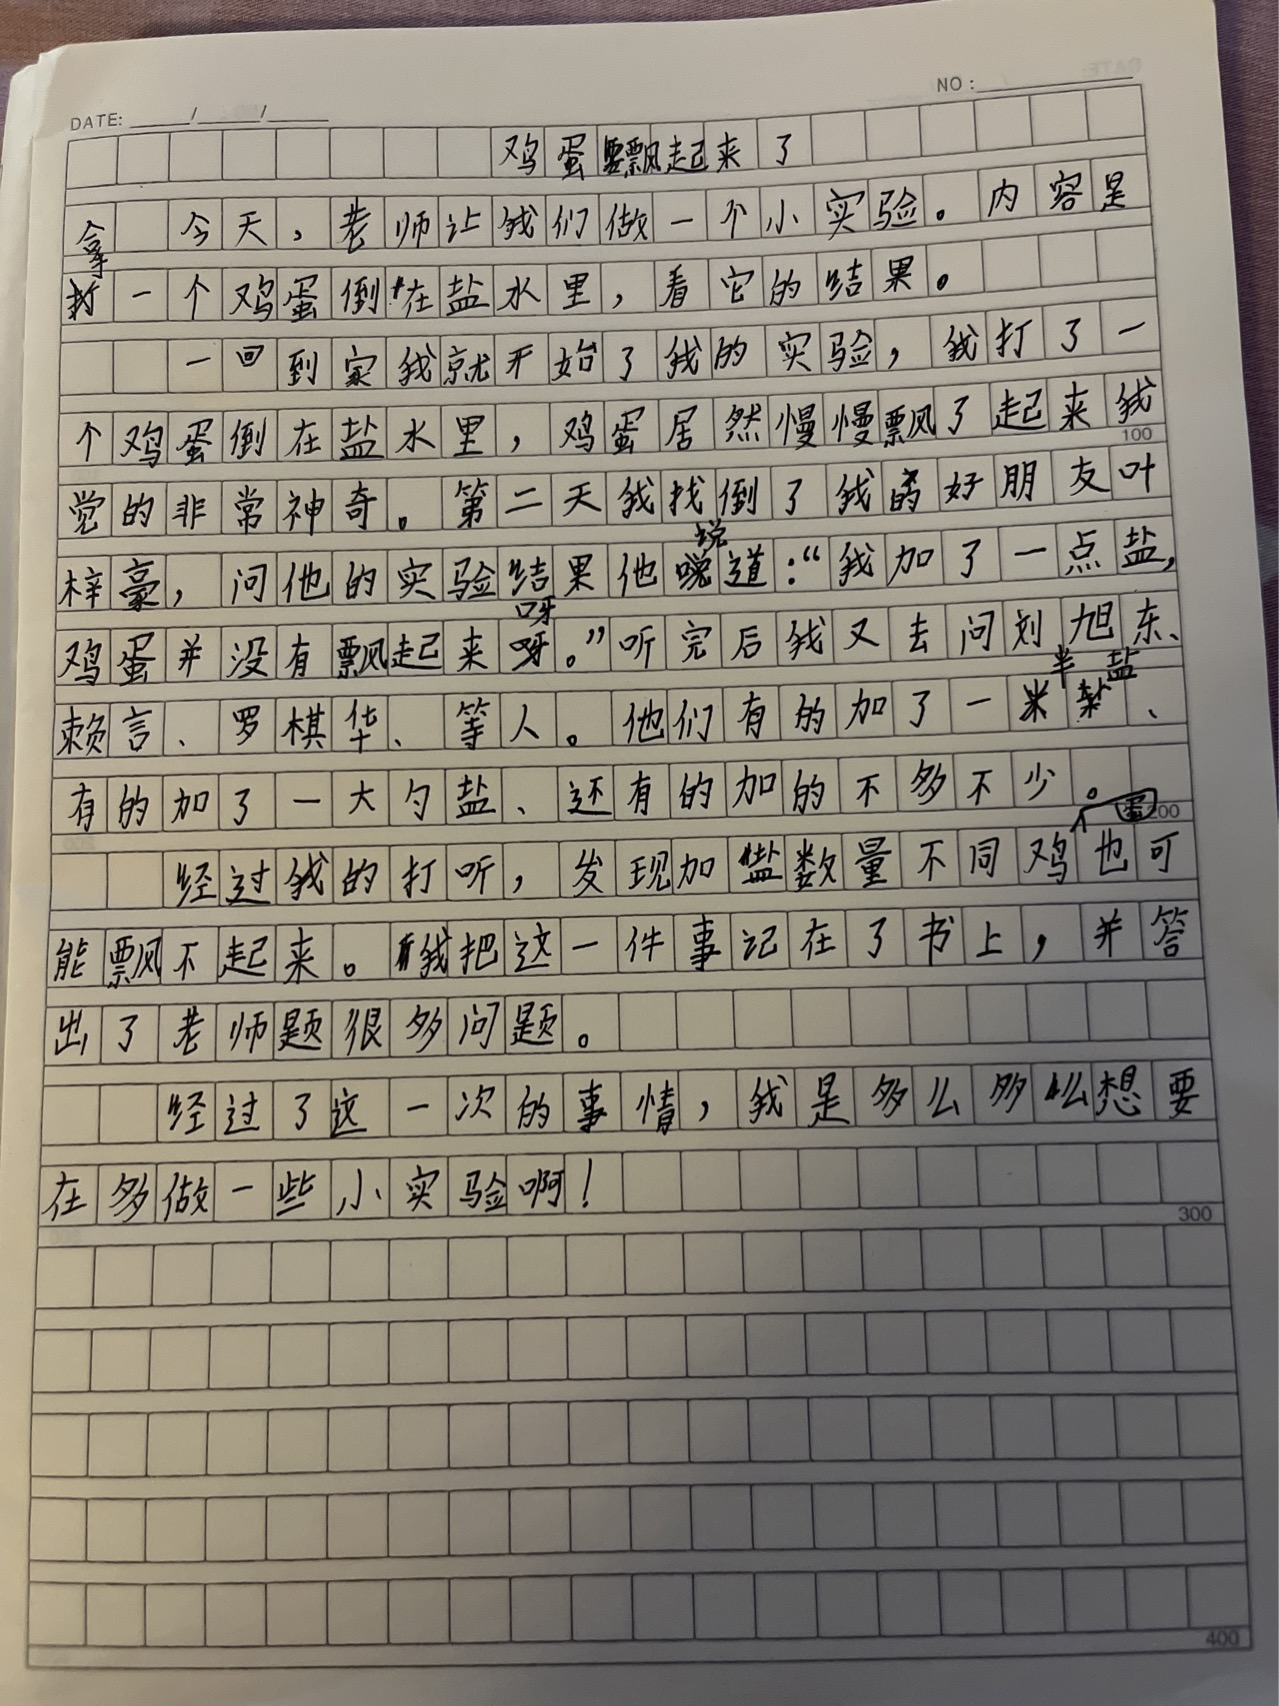 DATE: / /
NO:
鸡蛋飘起来了
今天，老师让我们做一个小实验。内容是
拿一个鸡蛋倒在盐水里，看它的结果。
一回到家我就开始了我的实验，我打了一
个鸡蛋倒在盐水里，鸡蛋居然慢慢飘了起来我
100
觉的非常神奇。第二天我找倒了我的好朋友叶
梓豪，问他的实验结果他说道：“我加了一点盐，
鸡蛋并没有飘起来呀。”听完后我又去问刘旭东、
赖言、罗棋华、等人。他们有的加了一半盐、
有的加了一大勺盐、还有的加的不多不少。
200
经过我的打听，发现加盐数量不同鸡蛋也可
能飘不起来。我把这一件事记在了书上，并答
出了老师题很多问题。
经过了这一次的事情，我是多么多么想要
在多做一些小实验啊！
300
400